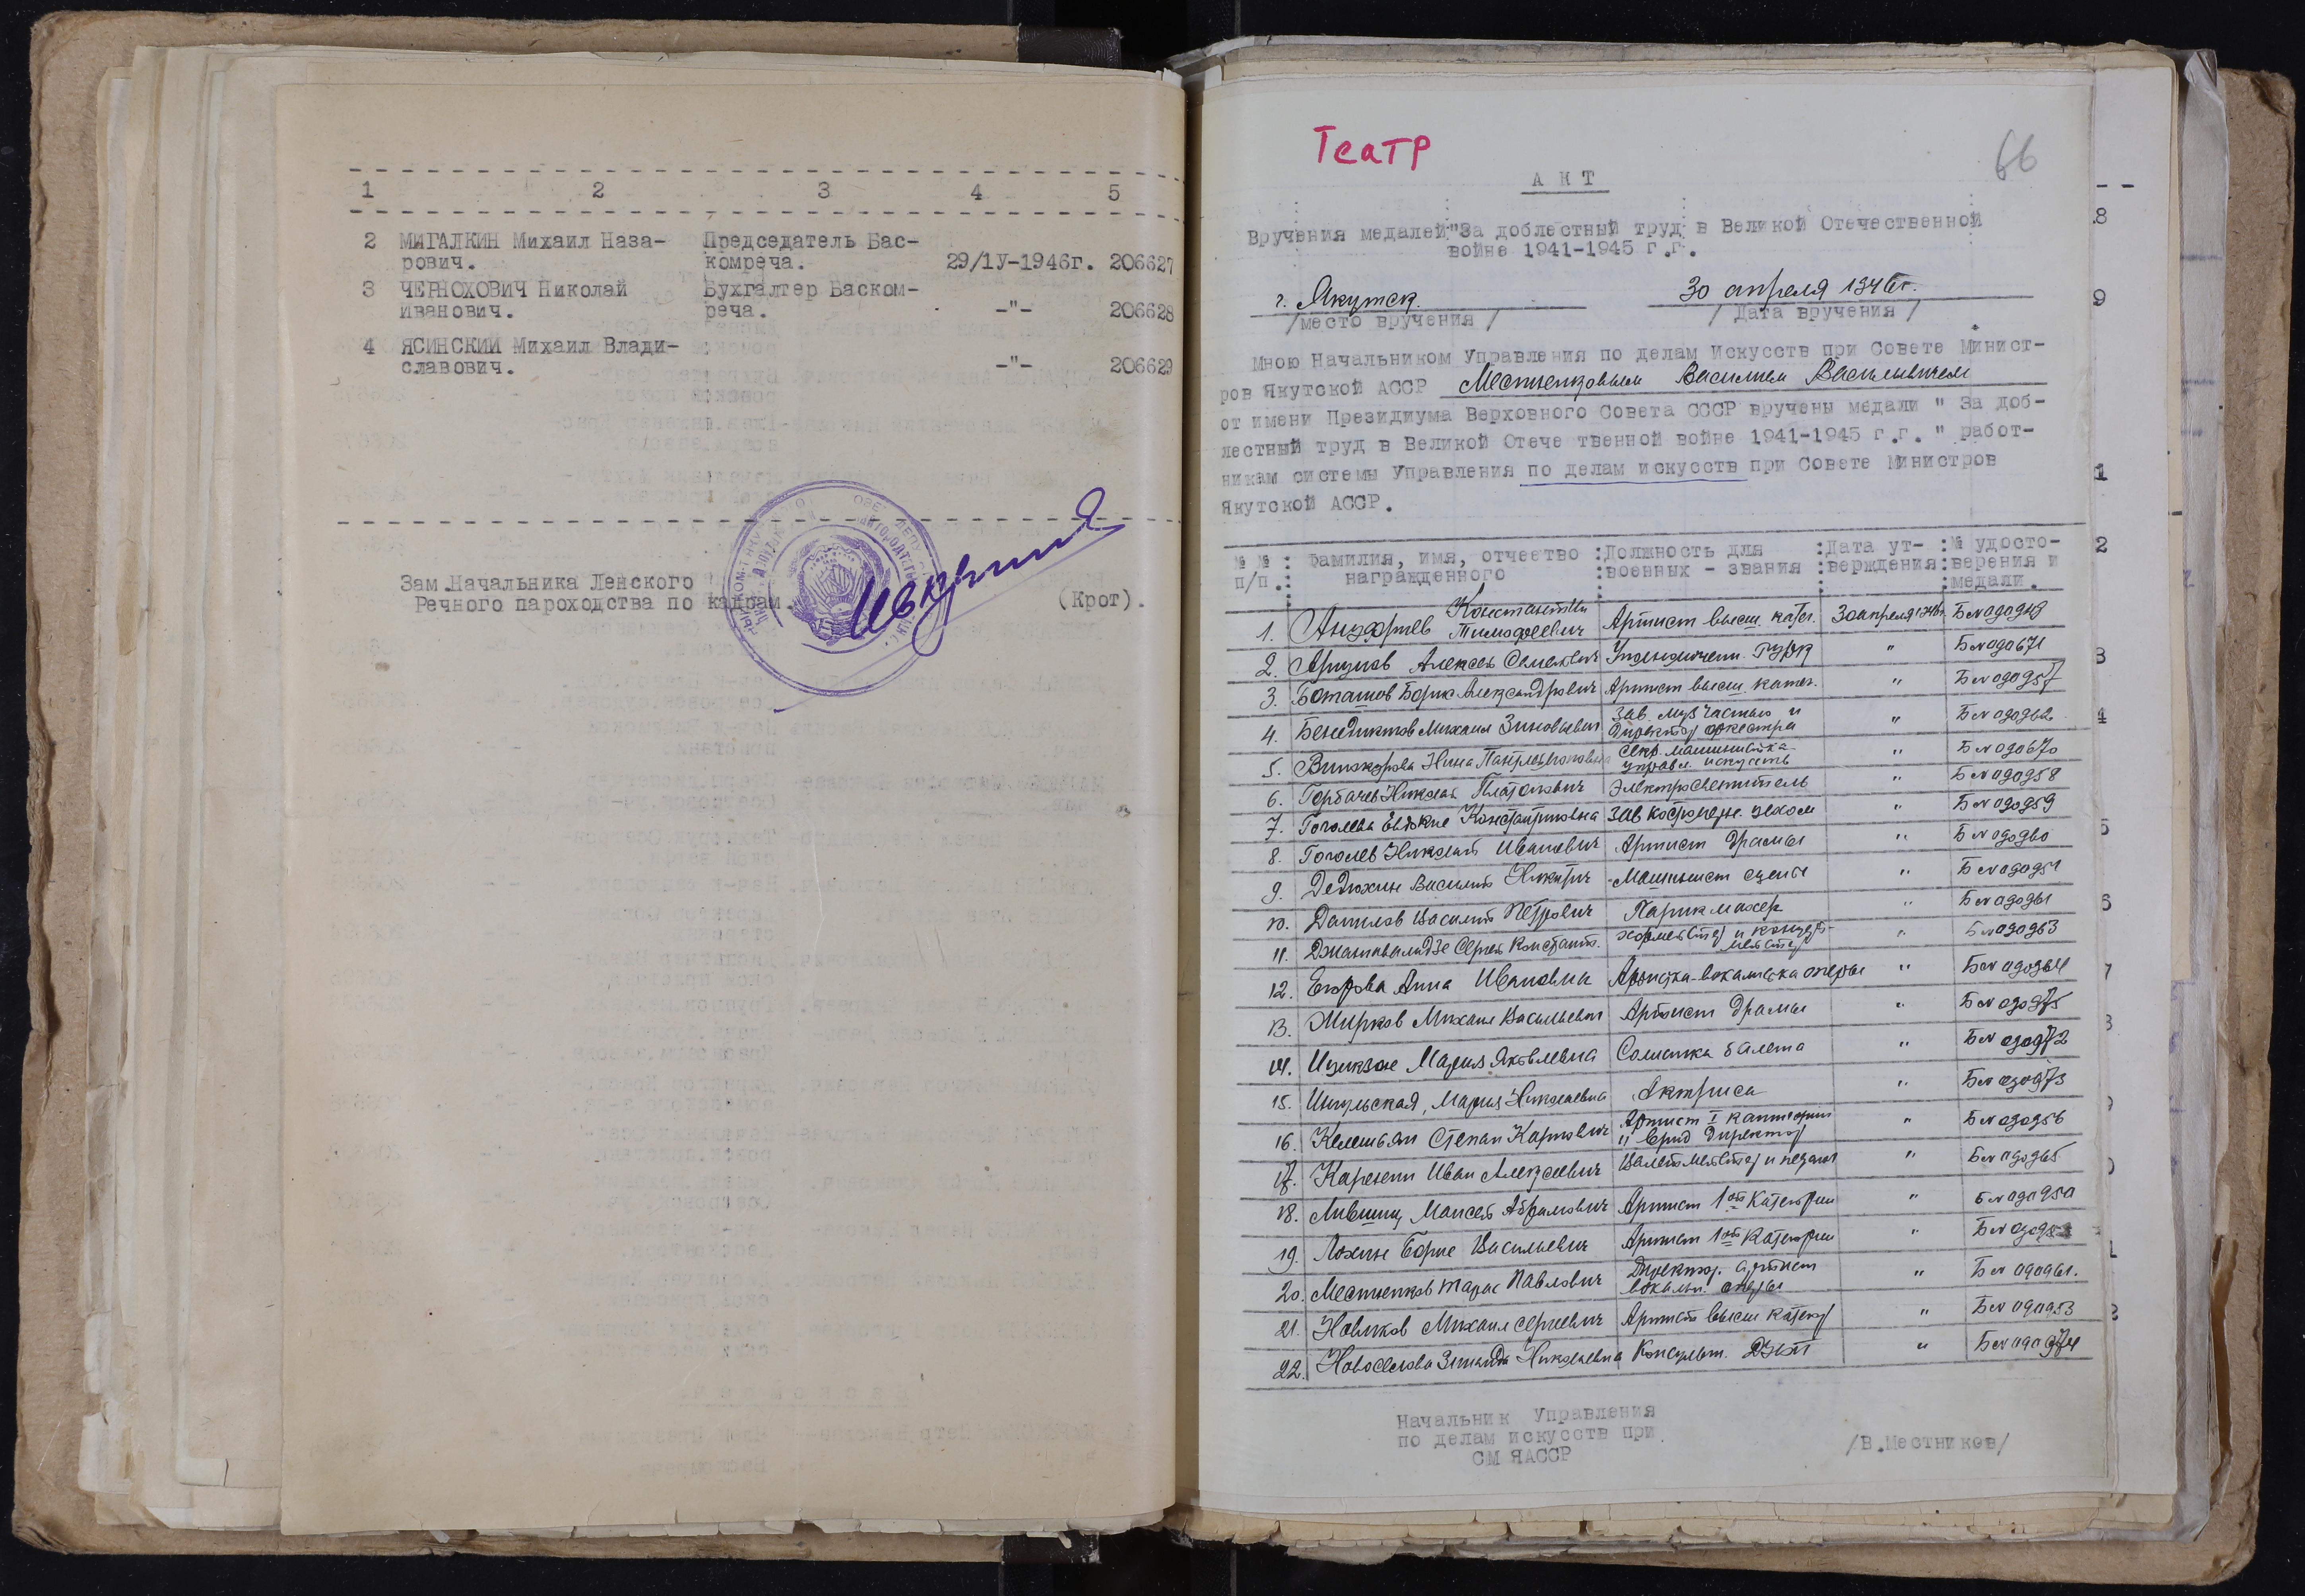 1 2 3 4 5
2 МИГАЛКИН Михаил Наза- Председатель Бас-
рович. комреча. 29/1У-1946г. 206627
3 ЧЕРНОХОВИЧ Николай Бухгалтер Баском-
Иванович. реча. -"- 206628
4 ЯСИНСКИЙ Михаил Влади-
славович. -"- 206629
Зам.Начальника Ленского
Речного пароходства по кадрам. (Крот).
Театр
66
АКТ
Вручения медалей "За доблестный труд в Великой Отечественной
войне 1941-1945 г.г.
г. Якутск. 30 апреля 1946г.
/место вручения / / Дата вручения /
Мною Начальником Управления по делам Искусств при Совете Минист-
ров Якутской АССР Местниковым Василием Васильевичем
от имени Президиума Верховного Совета СССР вручены медали " За доб-
лестный труд в Великой Отече твенной войне 1941-1945 г.г. " работ-
никам системы Управления по делам искусств при Совете Министров
Якутской АССР.
№ № : Фамилия, имя, отчество :Должность для :Дата ут- :№ удосто-
п/п.: награжденного :военных - звания :верждения:верения и
медали.
1. Ануфриев Константин Тимофеевич Артист высш. катег. 30 апреля 1946г. Б№ 090949
2. Аргунов Алексей Семенович Уполномочен. ГУРК " Б№ 090671
3. Боташов Борис Александрович Артист высш. катег. " Б№ 090957
4. Бенедиктов Михаил Зиновьевич Зав. муз частью и
директор оркестра " Б№ 090962
5. Винокурова Нина Пантелеймоновна Секр. машинистка
управл. искусств " Б№ 090670
6. Горбачев Николай Платонович Электроосветитель " Б№ 090958
7. Гоголева Евдокие Константиновна Зав костюмерн. цехом " Б№ 090959
8. Гоголев Николай Иванович Артист драмы " Б№ 090960
9. Дедюхин Василий Никитич Машинист сцены " Б№ 090951
10. Данилов Василий Петрович Парикмахер " Б№ 090961
11. Джанвалидзе Сергей Констант. хормейстер и концерт-
мейстер " Б№ 090963
12. Егорова Анна Ивановна Артистка-вокалистка оперы " Б№ 090964
13. Жирков Михаил Васильевич Артист драмы " Б№ 090975
14. Ициксон Мария Яковлевна Солистка балета " Б№ 090972
15. Ингульская, Мария Николаевна Актриса " Б№ 090973
16. Келешьян Степан Карпович Артист I категории
и врид директор " Б№ 090956
17. Каренин Иван Алексеевич Балетмейстер и педагог " Б№ 090965
18. Лившиц Моисей Абрамович Артист 1ой категории " Б№ 090950
19. Лохин Борис Васильевич Артист 1ой категории "
20. Местников Марк Павлович Директор. артист
вокальн. оперы " Б№ 090961.
21. Новиков Михаил Сергеевич Артист высш катег " Б№ 090953
22. Новоселова Зинаида Николаевна Консульт. " Б№ 090974
Начальник Управления
по делам искусств при
СМ ЯАССР /В.Местников/